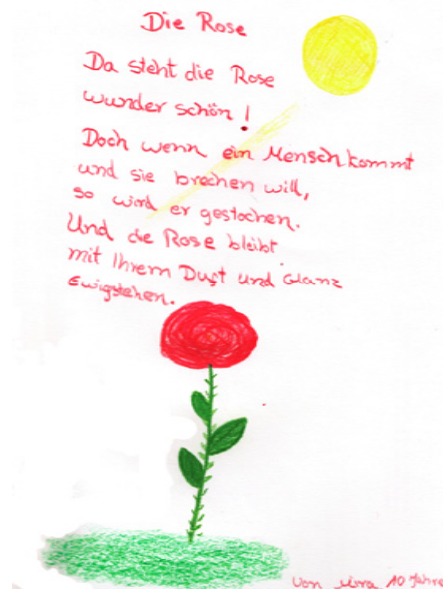 Die Rose
Da steht die Rose
wunder schön!
Doch wenn ein Mensch kommt
und sie brechen will,
so wird er gestochen.
Und die Rose bleibt
mit Ihrem Duft und Glanz
Ewigstehen.
von Mira 10 Jahre